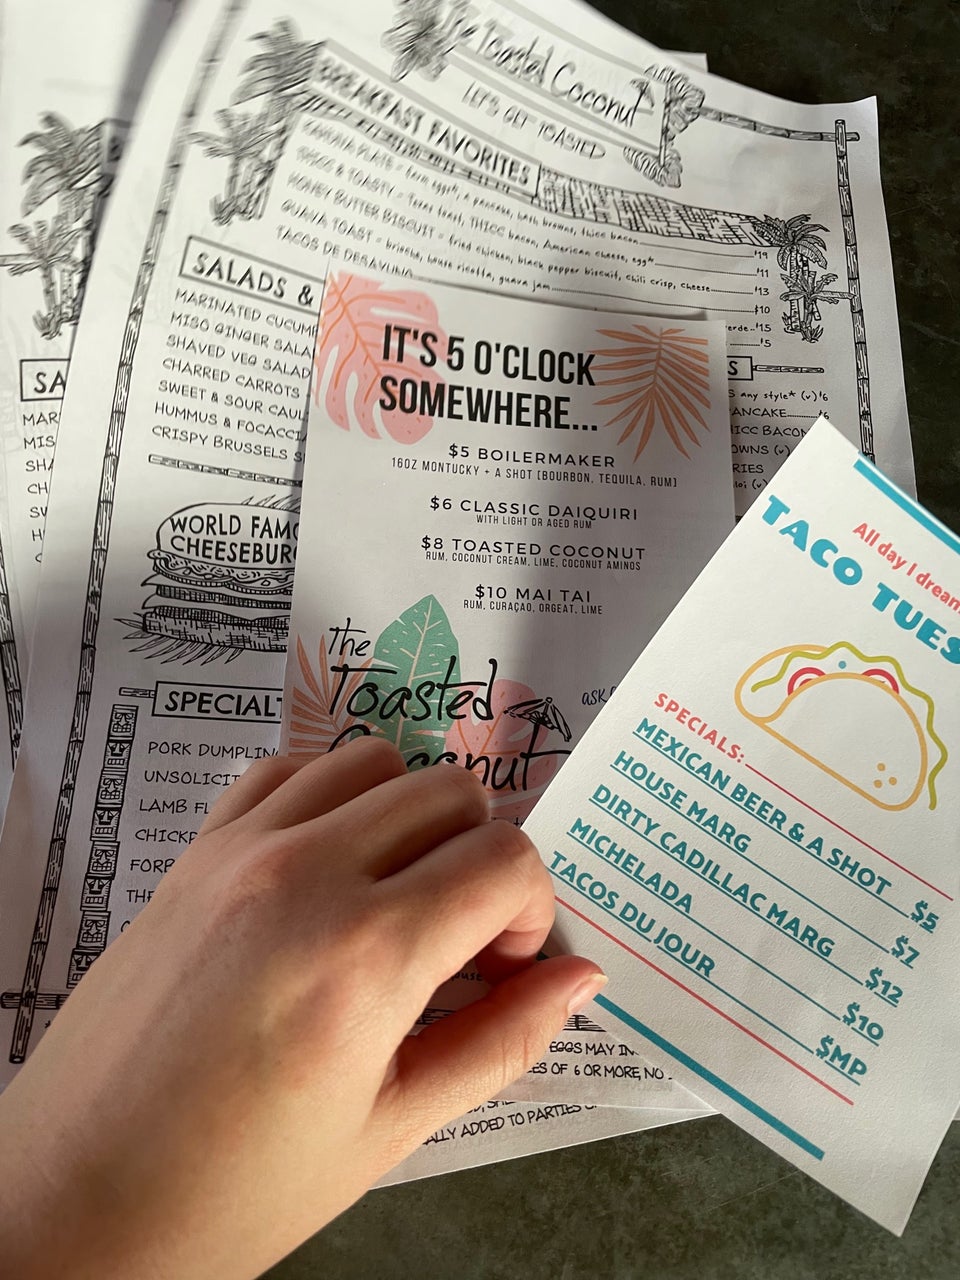 The Toasted Coconut
LET'S GET TOASTED
BREAKFAST FAVORITES
KAHUNA PLATE = farm eggs*, a pancake, hash browns, thicc bacon $19
THICC & TOASTY = Texas toast, THICC bacon, American cheese, egg* $11
HONEY BUTTER BISCUIT = fried chicken, black pepper biscuit, chili crisp, cheese $13
GUAVA TOAST = brioche, house ricotta, guava jam $10
TACOS DE DESAYUNO
verde $15
$5
SALADS &
MARINATED CUCUM
MISO GINGER SALA
SHAVED VEG SALAD
CHARRED CARROTS
SWEET & SOUR CAUL
HUMMUS & FOCACCI
CRISPY BRUSSELS S
S
any style* (v) $6
PANCAKE $6
THICC BACON
OWNS (v)
RIES
WORLD FAMO
CHEESEBUR
SPECIALT
PORK DUMPLIN
UNSOLICIT
LAMB FL
CHICKP
FORB
THE
SA
MAR
MIS
SHA
CH
SW
HU
IT'S 5 O'CLOCK
SOMEWHERE...
$5 BOILERMAKER
16OZ MONTUCKY + A SHOT [BOURBON, TEQUILA, RUM]
$6 CLASSIC DAIQUIRI
WITH LIGHT OR AGED RUM
$8 TOASTED COCONUT
RUM, COCONUT CREAM, LIME, COCONUT AMINOS
$10 MAI TAI
RUM, CURAÇAO, ORGEAT, LIME
The
Toasted
Coconut
ask
All day I dream
TACO TUES
SPECIALS:
MEXICAN BEER & A SHOT $5
HOUSE MARG $7
DIRTY CADILLAC MARG $12
MICHELADA $10
TACOS DU JOUR $MP
EGGS MAY IN
ES OF 6 OR MORE, NO
ALLY ADDED TO PARTIES O